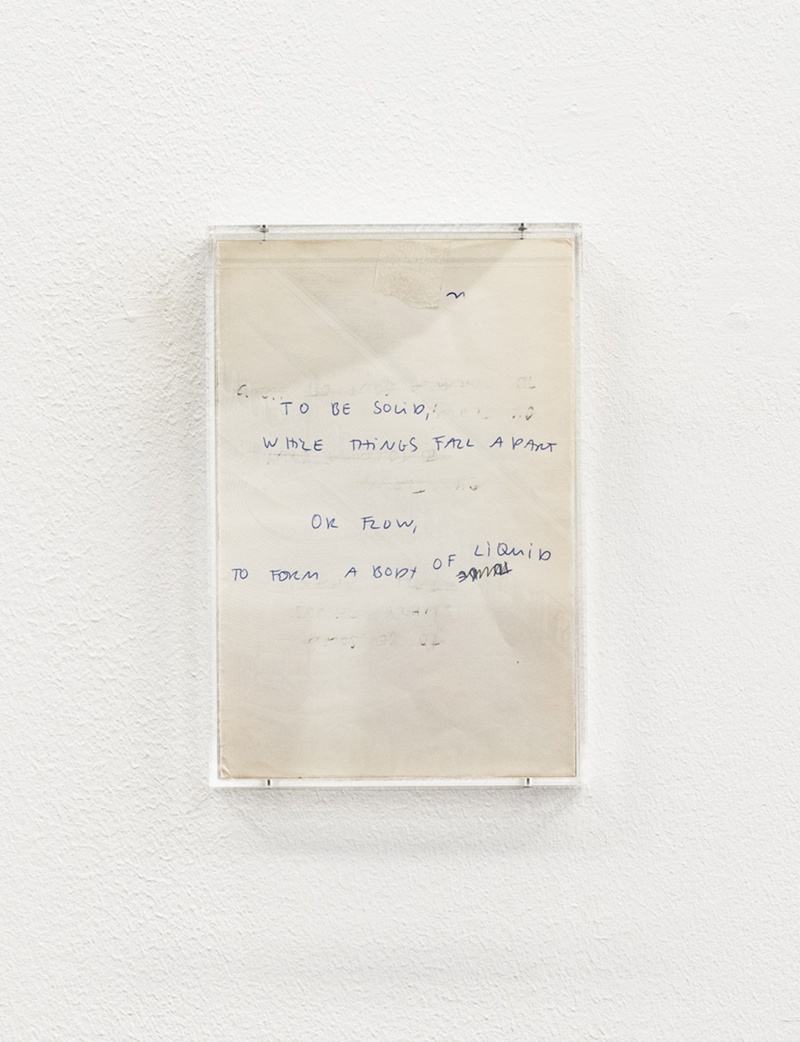 TO BE SOLiD,
WHiLE THiNGS FALL APART
OR FLOW,
TO FORM A BODY OF LiQUiD